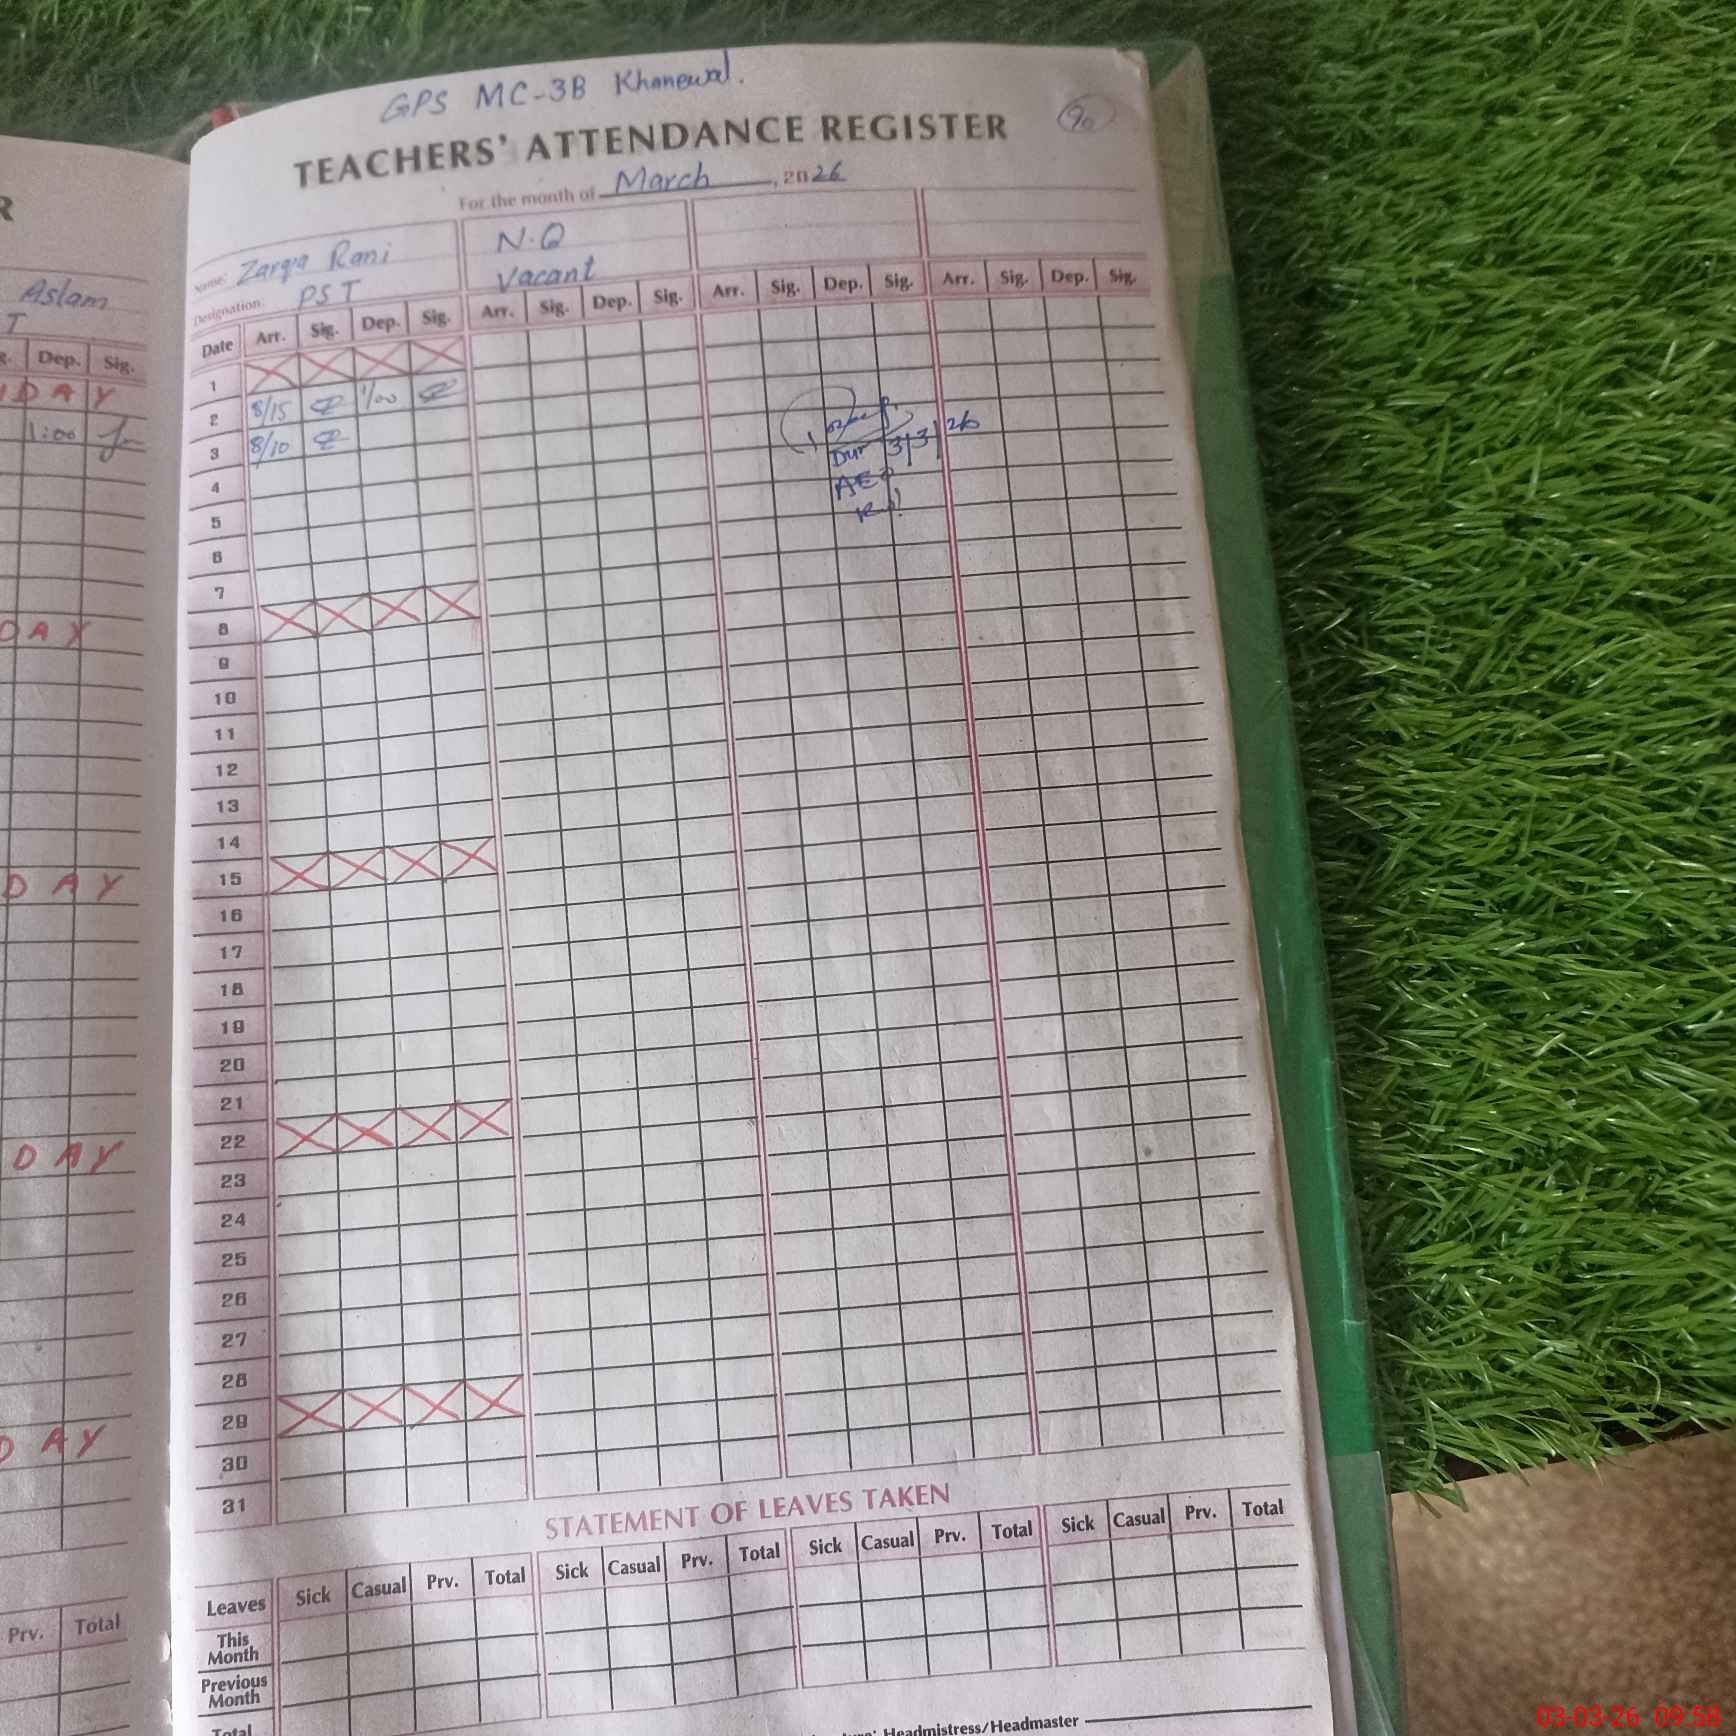 R
Aslam
T
Dep. Sig.
D A Y
1:00
D A Y
D A Y
D A Y
D A Y
Prv. Total
GPS MC-3B Khanewal.
90
TEACHERS' ATTENDANCE REGISTER
For the month of March, 2026
Name: Zarqa Rani N.Q
Designation. PST Vacant
Date Arr. Sig. Dep. Sig. Arr. Sig. Dep. Sig. Arr. Sig. Dep. Sig. Arr. Sig. Dep. Sig.
1
2 8/15 1/00
3 8/10
3/3/26
4
AEO
5
6
7
8
9
10
11
12
13
14
15
16
17
18
19
20
21
22
23
24
25
26
27
28
29
30
31
STATEMENT OF LEAVES TAKEN
Leaves Sick Casual Prv. Total Sick Casual Prv. Total Sick Casual Prv. Total Sick Casual Prv. Total
This Month
Previous Month
Total
Headmistress/Headmaster
03-03-26 09:58